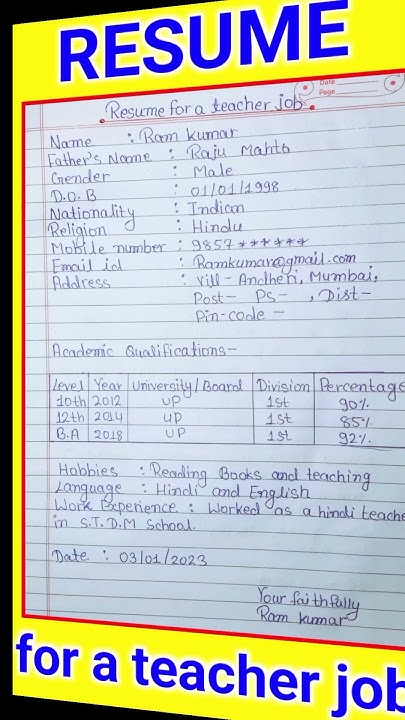 RESUME
Date
Page
Resume for a teacher job
Name : Ram kumar
Father's Name : Raju Mahto
Gender : Male
D.O.B : 01/01/1998
Nationality : Indian
Religion : Hindu
Mobile number : 9857******
Email id : Ramkumar@gmail.com
Address : Vill- Andheri, Mumbai,
Post- PS- , Dist-
Pin-code -
Academic Qualifications-
Level Year University/Board Division Percentage
10th 2012 UP 1st 90%
12th 2014 UP 1st 85%
B.A 2018 UP 1st 92%
Hobbies : Reading Books and teaching
Language : Hindi and English
Work Experience : Worked as a hindi teache
in S.T.D.M School.
Date : 03/01/2023
Your faithfully
Ram kumar
for a teacher job